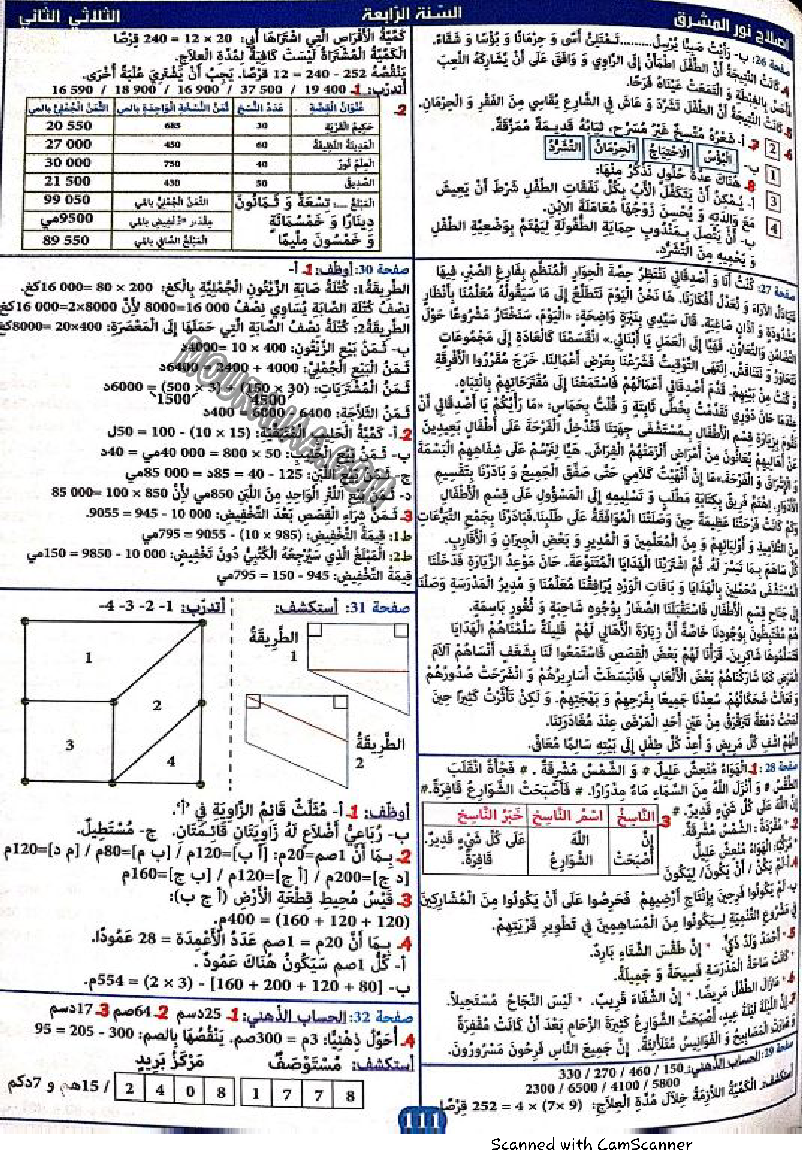 إصلاح نور المشرق
السّنة الرّابعة
الثّلاثي الثّاني
صفحة 26: ب- رَأَيْتُ صَبِيًّا يُرْسِلُ..........تَمْتَلِئُ أَسًى وَ حِرْمَانًا وَ بُؤْسًا وَ شَقَاءً.
4. كَانَتِ النَّتِيجَةُ أَنَّ الطِّفْلَ اطْمَأَنَّ إِلَى الرَّاوِي وَ وَافَقَ عَلَى أَنْ يُشَارِكَهُ اللَّعِبَ
فَأَحَسَّ بِالغِبْطَةِ وَ الْتَمَعَتْ عَيْنَاهُ فَرَحًا.
5. كَانَتِ النَّتِيجَةُ أَنَّ الطِّفْلَ تَشَرَّدَ وَ عَاشَ فِي الشَّارِعِ يُقَاسِي مِنَ الفَقْرِ وَ الحِرْمَانِ.
6. 2 7. أ- شَعْرُهُ مُتَّسِخٌ غَيْرُ مُسَرَّحٍ، ثِيَابُهُ قَدِيمَةٌ مُمَزَّقَةٌ.
1 ب- البُؤْسُ الاحْتِيَاجُ الحِرْمَانُ التَّشَرُّدُ
3 8. هُنَاكَ عِدَّةُ حُلُولٍ نَذْكُرُ مِنْهَا:
أ. يُمْكِنُ أَنْ يَتَكَفَّلَ الأَبُ بِكُلِّ نَفَقَاتِ الطِّفْلِ شَرْطَ أَنْ يَعِيشَ
4 مَعَ وَالِدَتِهِ وَ يُحْسِنَ زَوْجُهَا مُعَامَلَةَ الابْنِ.
ب- أَنْ يَتَّصِلَ بِمَنْدُوبِ حِمَايَةِ الطُّفُولَةِ لِيَهْتَمَّ بِوَضْعِيَّةِ الطِّفْلِ
وَ يَحْمِيهِ مِنَ التَّشَرُّدِ.
صفحة 27: كُنْتُ أَنَا وَ أَصْدِقَائِي نَنْتَظِرُ حِصَّةَ الحِوَارِ المُنَظَّمِ بِفَارِغِ الصَّبْرِ. فِيهَا
نَتَبَادَلُ الآرَاءَ وَ نُعَدِّلُ أَفْكَارَنَا. هَا نَحْنُ اليَوْمَ نَتَطَلَّعُ إِلَى مَا سَيَقُولُهُ مُعَلِّمُنَا بِأَنْظَارٍ
مَشْدُودَةٍ وَ آذَانٍ صَاغِيَةٍ. قَالَ سَيِّدِي بِنَبْرَةٍ وَاضِحَةٍ: «اليَوْمَ، سَنَخْتَارُ مَشْرُوعًا حَوْلَ
التَّضَامُنِ وَالتَّعَاوُنِ. فَهَيَّا إِلَى العَمَلِ يَا أَبْنَائِي.» انْقَسَمْنَا كَالعَادَةِ إِلَى مَجْمُوعَاتٍ
نَتَحَاوَرُ وَ نَتَنَاقَشُ. انْتَهَى التَّوْقِيتُ فَشَرَعْنَا بِعَرْضِ أَعْمَالِنَا. خَرَجَ مُقَرِّرُوا الأَفْرِقَةِ
وَ كُنْتُ مِنْ بَيْنِهِمْ. قَدَّمَ أَصْدِقَائِي أَعْمَالَهُمْ فَاسْتَمَعْنَا إِلَى مُقْتَرَحَاتِهِمْ بِانْتِبَاهٍ.
عِنْدَمَا حَانَ دَوْرِي تَقَدَّمْتُ بِخُطًى ثَابِتَةٍ وَ قُلْتُ بِحَمَاسٍ: «مَا رَأْيُكُمْ يَا أَصْدِقَائِي أَنْ
نَقُومَ بِزِيَارَةِ قِسْمِ الأَطْفَالِ بِمُسْتَشْفَى جِهَتِنَا فَنُدْخِلَ الفَرْحَةَ عَلَى أَطْفَالٍ بَعِيدِينَ
عَنْ أَهَالِيهِمْ يُعَانُونَ مِنْ أَمْرَاضٍ أَلْزَمَتْهُمُ الفِرَاشَ. هَيَّا لِنَرْسُمَ عَلَى شِفَاهِهِمُ البَسْمَةَ
وَ الإِشْرَاقَ وَ الفَرْحَةَ.»مَا إِنْ أَنْهَيْتُ كَلَامِي حَتَّى صَفَّقَ الجَمِيعُ وَ بَادَرْنَا بِتَقْسِيمِ
الأَدْوَارِ. اهْتَمَّ فَرِيقٌ بِكِتَابَةِ مَطْلَبٍ وَ تَسْلِيمِهِ إِلَى المَسْؤُولِ عَلَى قِسْمِ الأَطْفَالِ
وَكَمْ كَانَتْ فَرْحَتُنَا عَظِيمَةً حِينَ وَصَلَتْنَا المُوَافَقَةُ عَلَى طَلَبِنَا.فَبَادَرْنَا بِجَمْعِ التَّبَرُّعَاتِ
مِنَ التَّلَامِيذِ وَ أَوْلِيَائِهِمْ وَ مِنَ المُعَلِّمِينَ وَ المُدِيرِ وَ بَعْضِ الجِيرَانِ وَ الأَقَارِبِ.
كُلٌّ سَاهَمَ بِمَا تَيَسَّرَ لَهُ. ثُمَّ اشْتَرَيْنَا الهَدَايَا المُتَنَوِّعَةَ. حَانَ مَوْعِدُ الزِّيَارَةِ فَدَخَلْنَا
المُسْتَشْفَى مُحَمَّلِينَ بِالهَدَايَا وَ بَاقَاتِ الوَرْدِ يُرَافِقُنَا مُعَلِّمُنَا وَ مُدِيرُ المَدْرَسَةِ وَصَلْنَا
إِلَى جَنَاحِ قِسْمِ الأَطْفَالِ فَاسْتَقْبَلَنَا الصِّغَارُ بِوُجُوهٍ شَاحِبَةٍ وَ ثُغُورٍ بَاسِمَةٍ.
هُمْ مُغْتَبِطُونَ بِوُجُودِنَا خَاصَّةً أَنَّ زِيَارَةَ الأَهَالِي لَهُمْ قَلِيلَةٌ سَلَّمْنَاهُمُ الهَدَايَا
فَتَسَلَّمُوهَا شَاكِرِينَ. قَرَأْنَا لَهُمْ بَعْضَ القِصَصِ فَاسْتَمَعُوا لَنَا بِشَغَفٍ أَنْسَاهُمْ آلَامَ
المَرَضِ كَمَا شَارَكْنَاهُمْ بَعْضَ الأَلْعَابِ فَانْبَسَطَتْ أَسَارِيرُهُمْ وَ انْشَرَحَتْ صُدُورُهُمْ
وَ تَعَالَتْ ضَحَكَاتُهُمْ. سَعِدْنَا جَمِيعًا بِفَرَحِهِمْ وَ بَهْجَتِهِمْ. وَ لَكِنْ تَأَثَّرْتُ كَثِيرًا حِينَ
لَمَحْتُ دَمْعَةً تَتَرَقْرَقُ مِنْ عَيْنِ أَحَدِ المَرْضَى عِنْدَ مُغَادَرَتِنَا.
اللَّهُمَّ اشْفِ كُلَّ مَرِيضٍ وَ أَعِدْ كُلَّ طِفْلٍ إِلَى بَيْتِهِ سَالِمًا مُعَافًى.
صفحة 28: 1. الهَوَاءُ مُنْعِشٌ عَلِيلٌ # وَ الشَّمْسُ مُشْرِقَةٌ . # فَجْأَةً انْقَلَبَ
الطَّقْسُ # وَ أَنْزَلَ اللَّهُ مِنَ السَّمَاءِ مَاءً مِدْرَارًا. # فَأَصْبَحَتْ الشَّوَارِعُ قَافِرَةً.#
إِنَّ اللَّهَ عَلَى كُلِّ شَيْءٍ قَدِيرٌ. #
2- مُفْرَدَة : الشَّمْسُ مُشْرِقَةٌ.
مُرَكَّب: الهَوَاءُ مُنْعِشٌ عَلِيلٌ
3 النَّاسِخُ اسْمُ النَّاسِخِ خَبَرُ النَّاسِخِ
إِنَّ اللَّهَ عَلَى كُلِّ شَيْءٍ قَدِيرٌ.
أَصْبَحَتْ الشَّوَارِعُ قَافِرَةً.
4. أ- لَمْ يَكُنْ / أَنْ يَكُونَ/ لِيَكُونَ
ب- لَمْ يَكُونُوا فَرِحِينَ بِإِنْتَاجِ أَرْضِهِمْ فَحَرِصُوا عَلَى أَنْ يَكُونُوا مِنَ المُشَارِكِينَ
فِي مَشْرُوعِ التَّنْمِيَةِ لِيَكُونُوا مِنَ المُسَاهِمِينَ فِي تَطْوِيرِ قَرْيَتِهِمْ.
5. * أَحْمَدُ وَلَدٌ ذَكِيٌّ. * إِنَّ طَقْسَ الشِّتَاءِ بَارِدٌ.
* كَانَتْ سَاحَةُ المَدْرَسَةِ فَسِيحَةً وَ جَمِيلَةً.
6. * مَازَالَ الطِّفْلُ مَرِيضًا. * إِنَّ الشِّفَاءَ قَرِيبٌ. * لَيْسَ النَّجَاحُ مُسْتَحِيلًا.
7. إِنَّ اللَّيْلَةَ لَيْلَةُ عِيدٍ، أَصْبَحَتِ الشَّوَارِعُ كَثِيرَةَ الزِّحَامِ بَعْدَ أَنْ كَانَتْ مُقْفِرَةً
المَصَابِيحُ وَ الفَوَانِيسُ مُتَلَأْلِئَةً. إِنَّ جَمِيعَ النَّاسِ فَرِحُونَ مَسْرُورُونَ.
صفحة 29: الحساب الذّهني: 150 / 460 / 270 / 330
5800 / 4100 / 6500 / 2300
أستكشف: الكَمِّيَّةُ اللَّازِمَةُ خِلَالَ مُدَّةِ العِلَاجِ: (9 ×7) × 4 = 252 قُرْصًا
كَمِّيَّةُ الأَقْرَاصِ الَّتِي اشْتَرَاهَا أَبِي: 20 × 12 = 240 قُرْصًا
الكَمِّيَّةُ المُشْتَرَاةُ لَيْسَتْ كَافِيَةً لِمُدَّةِ العِلَاجِ.
يَنْقُصُهُ 252 - 240 = 12 قُرْصًا. يَجِبُ أَنْ يَشْتَرِيَ عُلْبَةً أُخْرَى.
أتدرّب: 1- 400 19 / 500 37 / 900 16 / 900 18 / 590 16
2- عُنْوَانُ القِصَّةِ عَدَدُ النُّسَخِ ثَمَنُ النُّسْخَةِ الوَاحِدَةِ بالمي الثَّمَنُ الجُمْلِيُّ بالمي
حَكِيمُ القَرْيَةِ 30 685 20 550
المَدِينَةُ النَّظِيفَةُ 60 450 27 000
العِلْمُ نُورٌ 40 750 30 000
الصَّدِيقُ 50 430 21 500
المَبْلَغُ ...: تِسْعَةٌ وَ ثَمَانُونَ الثَّمَنُ الجُمْلِيُّ بالمي 99 050
دِينَارًا وَ خَمْسُمَائَةٍ مِقْدَارُ التَّخْفِيضِ بالمي 9500مي
وَ خَمْسُونَ مِلِّيمًا المَبْلَغُ الصَّافِي بالمي 89 550
صفحة 30: أوظّف: 1. أ-
الطَّرِيقَةُ1: كُتْلَةُ صَابَةِ الزَّيْتُونِ الجُمْلِيَّةِ بِالكغ: 200 × 80 = 000 16كغ.
نِصْفُ كُتْلَةِ الصَّابَةِ يُسَاوِي نِصْفُ 000 16=8000 لِأَنَّ 8000×2=000 16كغ
الطَّرِيقَةُ2: كُتْلَةُ نِصْفِ الصَّابَةِ الَّتِي حَمَلَهَا إِلَى المَعْصَرَةِ: 400×20 =8000كغ
ب- ثَمَنُ بَيْعِ الزَّيْتُونِ: 400 × 10 =4000د
ثَمَنُ البَيْعِ الجُمْلِيُّ: 4000 + 2400 = 6400د
ثَمَنُ المُشْتَرَيَاتِ: (30 × 150) + (3 × 500) =6000د
4500 1500
ثَمَنُ الثَّلَّاجَةِ: 6400 - 6000 = 400د
2. أ- كَمِّيَّةُ الحَلِيبِ المُتَبَقِّيَةُ: (15 × 10) - 100 = 50ل
ب- ثَمَنُ بَيْعِ الحَلِيبِ: 50 × 800 = 000 40مي = 40د
ج - ثَمَنُ بَيْعِ اللَّبَنِ: 125 - 40 = 85د = 000 85مي
د- ثَمَنُ بَيْعِ اللِّتْرِ الوَاحِدِ مِنَ اللَّبَنِ 850مي لِأَنَّ 850 × 100= 000 85
3. ثَمَنُ شِرَاءِ القِصَصِ بَعْدَ التَّخْفِيضِ: 000 10 - 945 = 9055.
ط1: قِيمَةُ التَّخْفِيضِ: (985 × 10) - 9055 = 795مي
ط2: المَبْلَغُ الَّذِي سَيُرْجِعُهُ الكُتُبِيُّ دُونَ تَخْفِيضٍ: 000 10 - 9850 = 150مي
قِيمَةُ التَّخْفِيضِ: 945 - 150 = 795مي
صفحة 31: أستكشف:
الطَّرِيقَةُ
1
الطَّرِيقَةُ
2
أتدرّب: 1- 2- 3- 4-
1
2
3
4
أوظّف: 1. أ- مُثَلَّثٌ قَائِمُ الزَّاوِيَةِ فِي "أ".
ب- رُبَاعِيُّ أَضْلَاعٍ لَهُ زَاوِيَتَانِ قَائِمَتَانِ. ج- مُسْتَطِيلٌ.
2- بِمَا أَنَّ 1صم=20م: [أ ب]=120م / [ب م]=80م / [م د]=120م
[د ج]=200م / [أ ج]=120م / [ب ج]=160م
3. قَيْسُ مُحِيطِ قِطْعَةِ الأَرْضِ (أ ج ب):
(120 + 120 + 160) = 400م.
4. بِمَا أَنَّ 20م = 1صم عَدَدُ الأَعْمِدَةِ = 28 عَمُودًا.
أ- كُلُّ 1صم سَيَكُونُ هُنَاكَ عَمُودٌ .
ب- [80 + 120 + 200 + 160] - (3 × 2) = 554م.
صفحة 32: الحساب الذّهني: 1- 25دسم 2. 64صم 3. 17دسم
4. أُحَوِّلُ ذِهْنِيًّا: 3م = 300صم. يَنْقُصُهَا بِالصم: 300 - 205 = 95
أستكشف: مُسْتَوْصَفٌ مَرْكَزُ بَرِيدٍ
1 7 7 8 2 4 0 8 / 15هم و 7دكم
111
Scanned with CamScanner